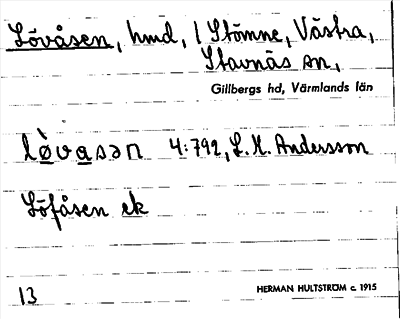 Lövåsen, hmd, 1 Stömne, Västra,
Stavnäs sn,
Gillbergs hd, Värmlands län
lòvasən 4:792, L. M. Andersson
Löfåsen ek
13 HERMAN HULTSTRÖM c. 1915